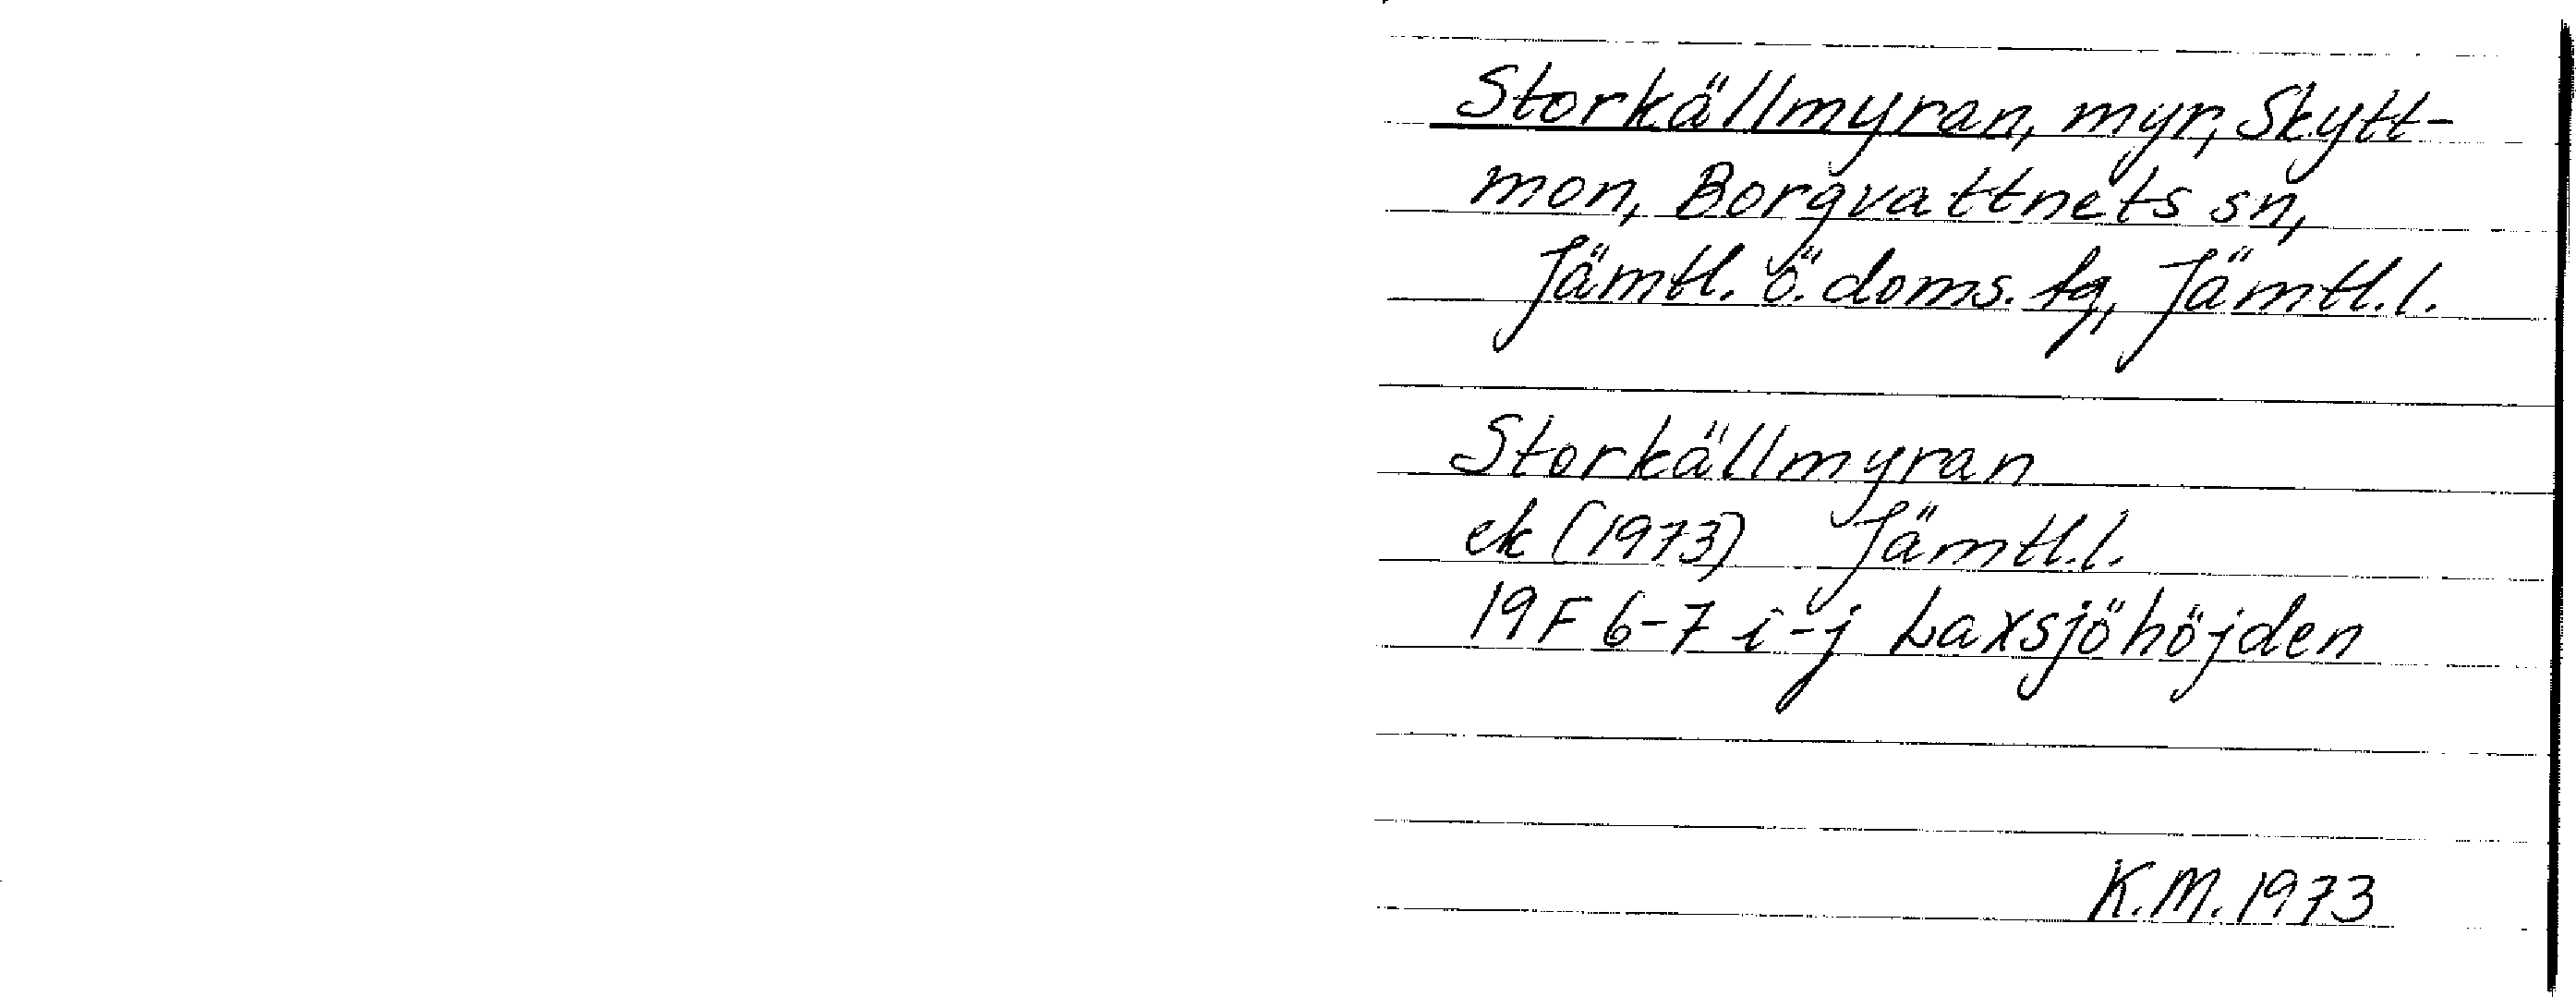 Storkällmyran, myr, Skytt-
mon, Borgvattnets sn,
Jämtl. ö. doms. tg, Jämtl.l.
Storkällmyran
ek (1973) Jämtl.l.
19F 6-7 i-j Laxsjöhöjden
K.M. 1973